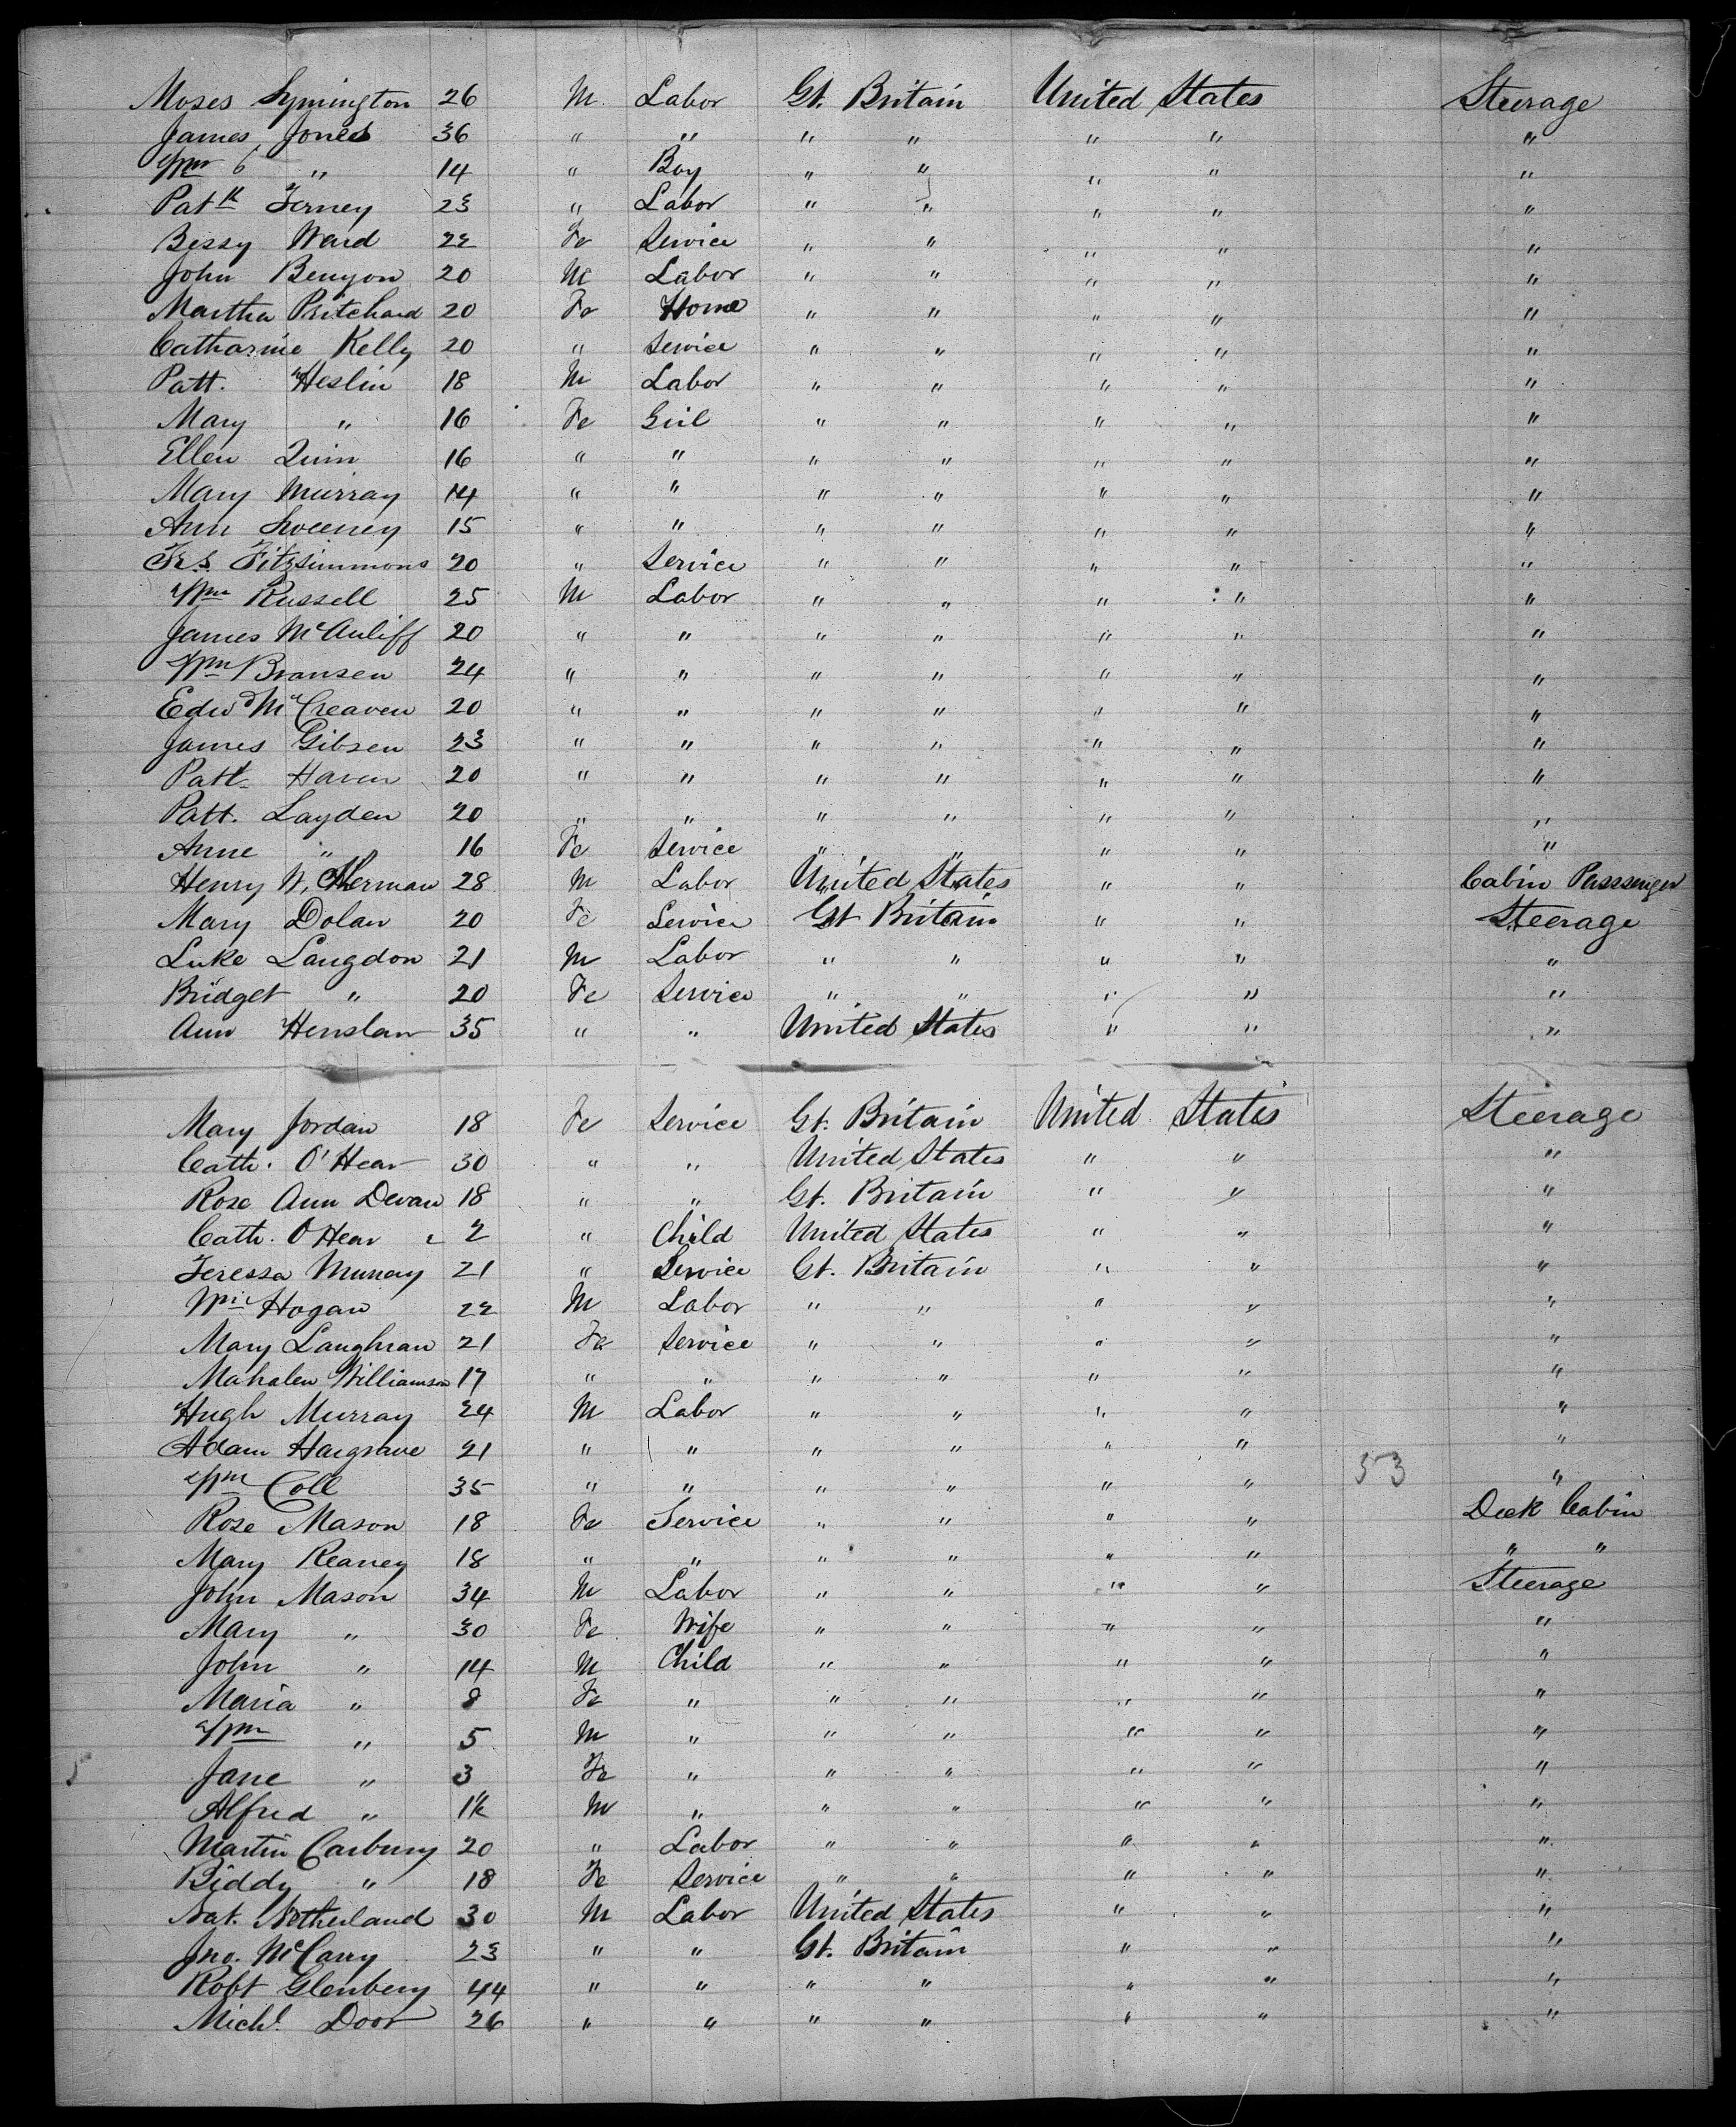 Moses Symington 26 M. Labor Gt. Britain United States Steerage
James Jones 36 " " " " " " "
Wm " 14 " Boy " " " " "
Patk Ferney 23 " Labor " " " " "
Bessy Ward 22 Fe Service " " " " "
John Benyon 20 M Labor " " " " "
Martha Pritchard 20 Fe Home " " " " "
Catharine Kelly 20 " Service " " " " "
Patt. Heslin 18 M Labor " " " " "
Mary " 16 Fe Girl " " " " "
Ellen Quinn 16 " " " " " " "
Mary Murray 14 " " " " " " "
Ann Sweeney 15 " " " " " " "
Frs. Fitzsimmons 20 " Service " " " " "
Wm Russell 25 M Labor " " " " "
James McAuliff 20 " " " " " " "
Wm Bransen 24 " " " " " " "
Edwd McCreaven 20 " " " " " " "
James Gibsen 23 " " " " " " "
Patt. Haven 20 " " " " " " "
Patt. Layden 20 " " " " " " "
Anne " 16 Fe Service " " " " "
Henry W, Sherman 28 M Labor United States " " Cabin Passsenger
Mary Dolan 20 Fe Service Gt Britain " " Steerage
Luke Langdon 21 M Labor " " " " "
Bridget " 20 Fe Service " " " " "
Ann Henslan 35 " " United States " " "
Mary Jordan 18 Fe Service Gt. Britain United States Steerage
Cath. O'Hear 30 " " United States " " "
Rose Ann Devan 18 " " Gt. Britain " " "
Cath. O'Hear 2 " Child United States " " "
Teressa Murray 21 " Service Gt. Britain " " "
Wm Hogan 22 M Labor " " " " "
Mary Laughran 21 Fe Service " " " " "
Mahalen Williamson 17 " " " " " " "
Hugh Murray 24 M Labor " " " " "
Adam Hargrave 21 " " " " " " "
Wm Coll 35 " " " " " " 53 "
Rose Mason 18 Fe Service " " " " Deck Cabin
Mary Reaney 18 " " " " " " " "
John Mason 34 M Labor " " " " Steerage
Mary " 30 Fe Wife " " " " "
John " 14 M Child " " " " "
Maria " 8 Fe " " " " " "
Wm " 5 M " " " " " "
Jane " 3 Fe " " " " " "
Alfred " 1½ M " " " " " "
Martin Carbury 20 " Labor " " " " "
Biddy " 18 Fe Service " " " " "
Nat. Netherland 30 M Labor United States " " "
Jno. McCarry 23 " " Gt. Britain " " "
Robt Glenbery 44 " " " " " " "
Michl. Door 26 " " " " " " "